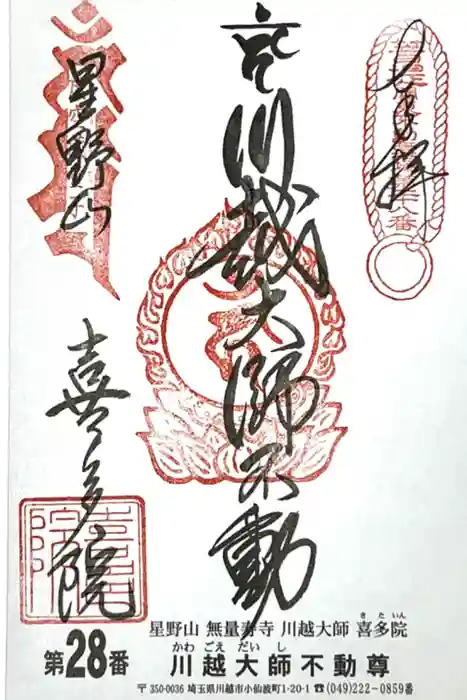 奉拝
川越大師不動
星野山
喜多院
星野山 無量寿寺 川越大師 喜多院
きたいん
第28番
川越大師不動尊
かわごえだいし
〒350-0036 埼玉県川越市小仙波町1-20-1 ☎(049)222-0859番